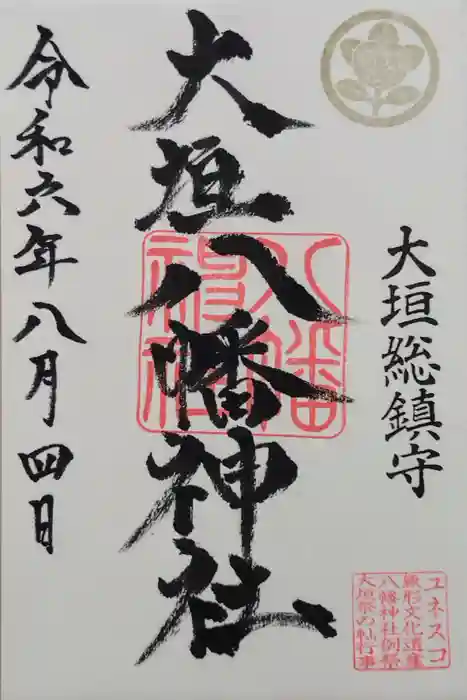 大垣総鎮守
大垣八幡神社
令和六年八月四日
八幡
神社
ユネスコ
無形文化遺産
八幡神社例祭
大垣祭の軕行事